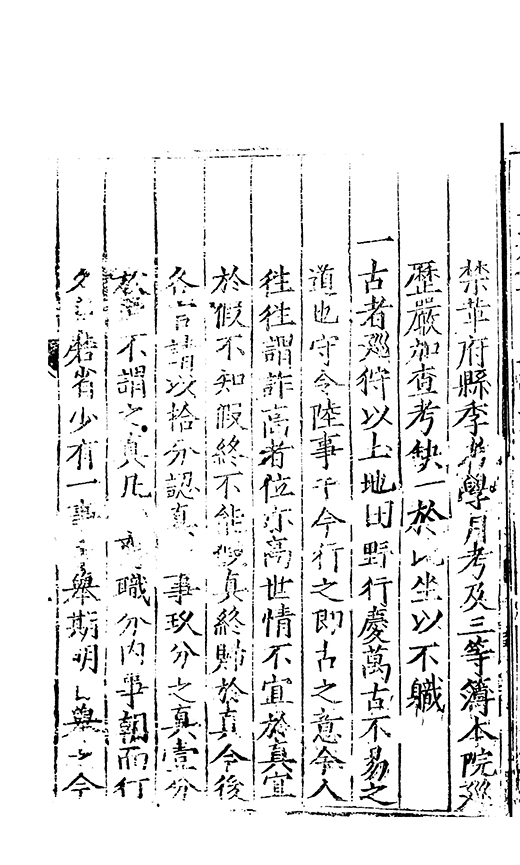 禁革府縣季考學月考及三等簿本院廵
歷嚴加查考缺一於此坐以不職
一古者廵狩以土地田野行慶萬古不易之
道也守令陸事于今行之即古之意今人
徃徃謂詐高者位亦高世情不宜於真宜
於假不知假終不能假真終歸於真今後
各官請以拾分認真事玖分之真壹分
不謂之真凡職分內事朝而行
夕省少有一事舉期明舉今